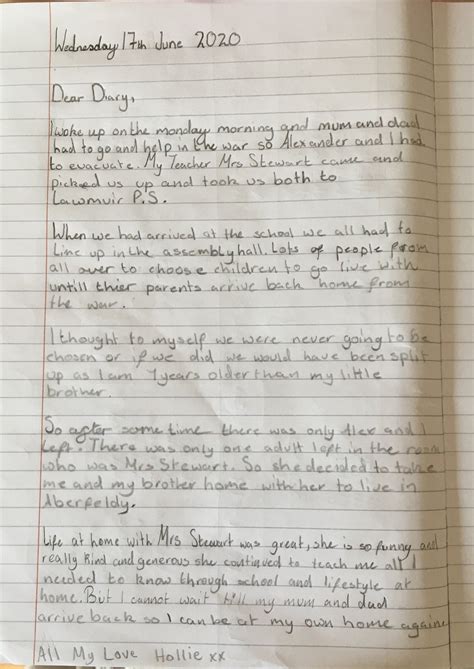 Wednesday 17th June 2020
Dear Diary,
I woke up on the monday morning and mum and dad
had to go and help in the war so Alexander and I had
to evacuate. My Teacher Mrs Stewart came and
picked us up and took us both to
Lawmuir P.S.
When we had arrived at the school we all had to
line up in the assembly hall. Lots of people from
all over to choose children to go live with
untill thier parents arrive back home from
the war.
I thought to myself we were never going to be
chosen or if we did we would have been split
up as I am 7years older than my little
brother.
So after some time there was only Alex and I
left. There was only one adult left in the room
who was Mrs Stewart. So she decided to take
me and my brother home with her to live in
Aberfeldy.
Life at home with Mrs Stewart was great, she is so funny and
really kind and generous she continued to teach me all I
needed to know through school and lifestyle at
home. But I cannot wait till my mum and dad
arrive back so I can be at my own home again
All My Love Hollie xx